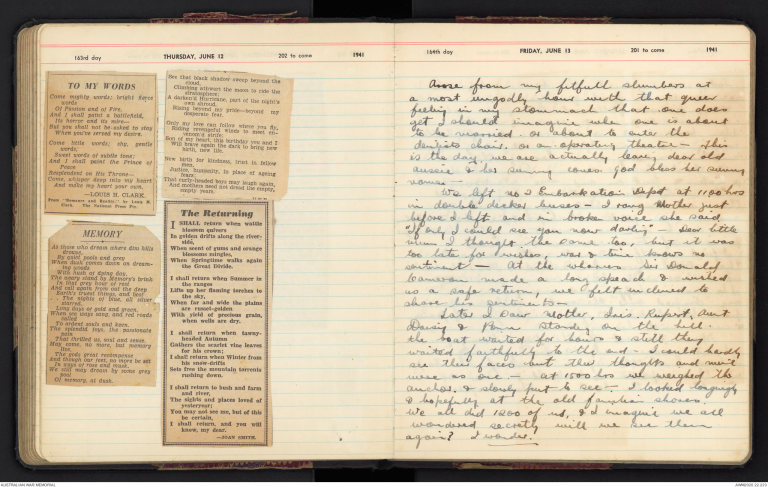 163rd day THURSDAY, JUNE 12 202 to come 1941
TO MY WORDS
Come mighty words; bright fierce
words
Of Passion and of Fire,
And I shall paint a battlefield,
Its horror and its mire—
But you shall not be asked to stay
When you've served my desire.
Come little words; shy, gentle
words;
Sweet words of subtle tone;
And I shall paint the Prince of
Peace
Resplendent on His Throne—
Come, whisper deep into my heart
And make my heart your own.
—LOUIS H. CLARK.
From "Romance and Reality," by Louis H.
Clark. The National Press Pty.
MEMORY
As those who dream where dim hills
drowse,
By quiet pools and grey
When dusk comes down on dream-
ing woods
With hush of dying day,
The misty island by Memory's brink
In that grey hour of rest
And call again from out the deep
Earth's truest things, and best
The nights of blue, all silver
starred,
Long days of gold and green,
When sea ways sang, and red roads
called
To ardent souls and keen.
The splendid joys, the passionate
pain
That thrilled us, soul and sense
May come, no more, but memory
lives
The gods great recompense
And though our feet no more be set
In ways of rose and musk,
We still may dream by some grey
pool
Of memory, at dusk.
See that black shadow sweep beyond the
cloud,
Climbing athwart the moon to ride the
stratosphere.
A darkened Hurricane, part of the night's
own shroud,
Rising beyond my pride—beyond my
desperate fear.
Only my love can follow where you fly,
Riding revengeful winds to meet en-
venom'd strife;
Son of my heart, this birthday you and I
Will brave again the dark to bring new
birth, new life.
New birth for kindness, trust in fellow
men,
Justice, humanity, in place of ageing
fears;
That curly-headed boys may laugh again,
And mothers need not dread the empty,
empty years.
The Returning
I SHALL return when wattle
blossom quivers
In golden drifts along the river-
side,
When scent of gums and orange
blossoms mingles,
When Springtime walks again
the Great Divide.
I shall return when Summer in
the ranges
Lifts up her flaming torches to
the sky,
When far and wide the plains
are russet-golden
With yield of precious grain,
when wells are dry.
I shall return when tawny-
headed Autumn
Gathers the scarlet vine leaves
for his crown;
I shall return when Winter from
his snow-drifts
Sets free the mountain torrents
rushing down.
I shall return to bush and farm
and river,
The sights and places loved of
yesteryear;
You may not see me, but of this
be certain,
I shall return, and you will
know, my dear.
—JOAN SMITH.
164th day FRIDAY, JUNE 13 201 to come 1941
Arose from my fitfull slumbers at
a most ungodly hour with that queer
feeling in my stommach that one does
get I should imagine when one is about
to be married. or about to enter the
dentists chair. or an operating theatre – This
is the day we are actually leaving dear old
aussie & her sunny coves. God bless her sunny
women –
We left No 2 Embarkation Depot at 1100 hrs
in double decker buses – I rang Mother just
before I left and in broken voice she said,
"If only I could see you now darling" – Dear little
mum I thought the same too, but it was
too late for wishes, war & time knows no
sentiment – At the wharves Sir Donald
Cameron made a long speach & wished
us a safe return, we felt inclined to
share his sentiments –
Later I saw Mother, Iris, Rupert, Aunt
Daisy & Pam standing on the hill.
the boat waited for hours & still they
waited faithfully to the end – I could hardly
see their faces but their thoughts and mine
were as one – at 1500 hrs we weighed the
anchor & slowly put to sea –. I looked longingly
& hopefully at the old familiar shores.
We all did 1200 of us, & I imagine we all
wondered secretly will we see them
again? I wonder.
AUSTRALIAN WAR MEMORIAL
AWM2020.22.223